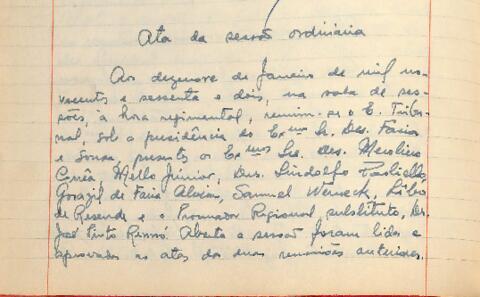 Ata da sessão ordinária
Aos dezenove de Janeiro de mil no-
vecentos e sessenta e dois, na sala de ses-
sões, à hora regimental, reuniu-se o E. Tribu-
nal, sob a presidência do Exmo Sr. Des. Faria
e Sousa, presentes os Exmos Srs. Des. Merolino
Corrêa, Mello Júnior, Drs. Lindolfo Paoliello,
Gorazil de Faria Alvim, Samuel Werneck, Líbio
de Resende e o Procurador Regional substituto, Dr.
José Pinto Rennó. Aberta a sessão foram lidas e
aprovadas as atas das duas reuniões anteriores.